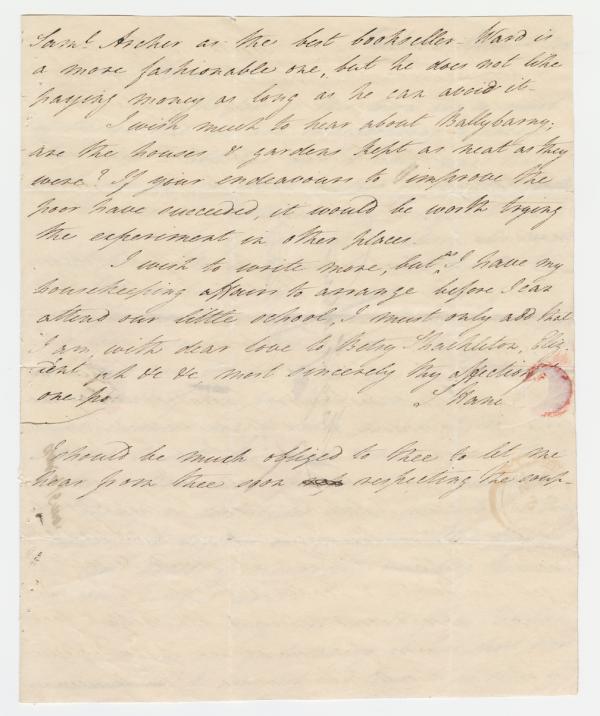 Saml. Archer as the best bookseller - Ward is
a more fashionable one, but he does not like
paying money as long as he can avoid it -
I wish much to hear about Ballybarny;
are the houses & gardens kept as neat as they
were? If your endeavours to improve the
poor have succeeded, it would be worth trying
the experiment in other places.
I wish to write more, but I have my
housekeeping affairs to arrange before I can
attend our little school, I must only add that
I am, with dear love to Betsy Shackleton,
&c &c most sincerely thy
one
I should be much obliged to thee to let me
hear from thee soon respecting the soup -